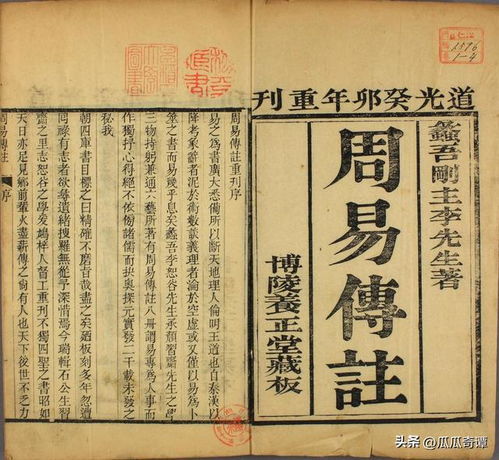 道光癸卯年重刊
蠡吾剛主李先生著
周易傳註
博陵養正堂藏板
1576
1-4
周易傳註重刊序
易之為書廣大悉備所以斷天地理人倫明王道也自秦漢以
降考象辭者泥於術數談義理者淪於空虛或又僅以易為卜
筮之書而易幾乎息矣蠡吾李恕谷先生承顏習齋先生之學
三物持躬兼通六藝所著有周易傳註八冊謂易專為人事而
作獨抒心得絕不依傍諸儒而抉奧探元實發二千載未發之
秘我
朝四庫書目標之曰精確不磨旨哉盡之矣迺板刻多年忽遭
回祿有志者欲尋遺緒搜羅無從予深惜焉今瑞輯石公生習
齋之里志恕谷之學爰鳩梓人督工重刊不獨四聖之書昭如
天日亦足見鄉前輩火盡薪傳之尚有人也天下後世不乏力
周易傳註 序
头条 @瓜瓜奇谭